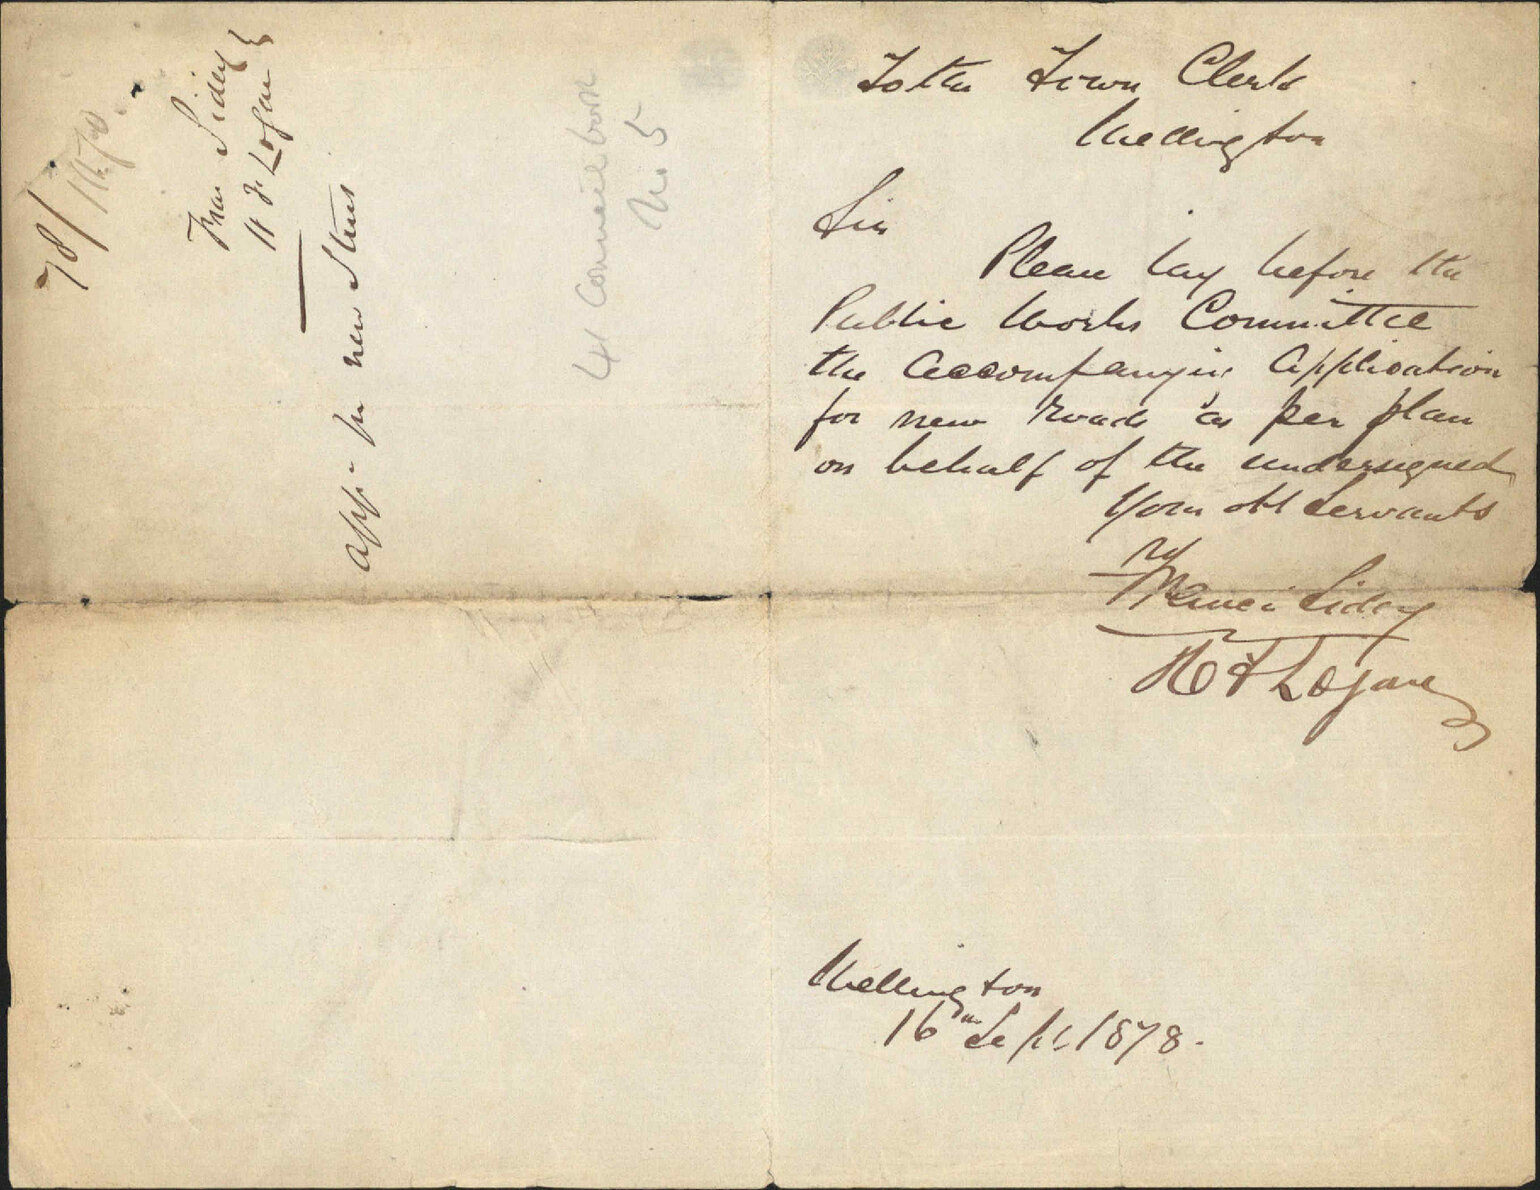 To the Town Clerk
Wellington
Sir
Please lay before the
Public Works Committee
the accompanying application
for new roads as per plan
on behalf of the undersigned
Your obt Servants
Sidey
H F Logan
Wellington
16th Sept 1878.
78/
Sidey
H F Logan
appn for new Streets
41 Council book
No 5